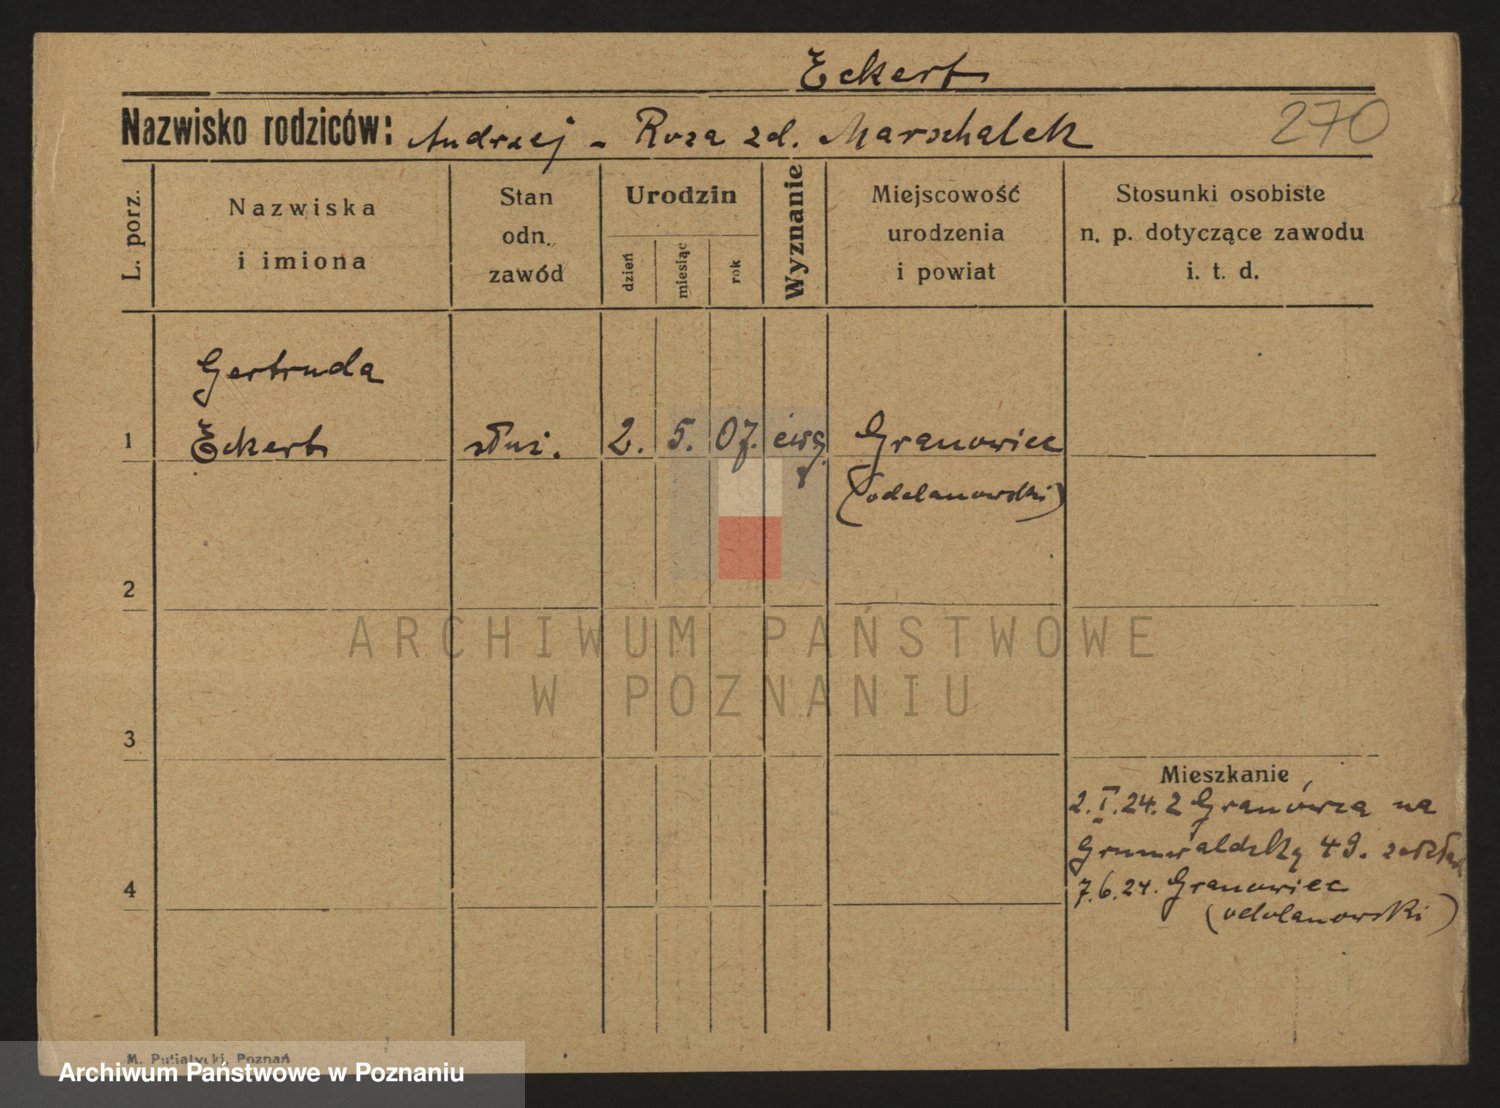 Eckert
Nazwisko rodziców: Andrzej - Roza zd. Marschalek
270
L. porz.
Nazwiska
i imiona
Stan
odn.
zawód
Urodzin
dzień
miesiąc
rok
Wyznanie
Miejscowość
urodzenia
i powiat
Stosunki osobiste
n. p. dotyczące zawodu
i. t. d.
Gertruda
1 Eckert służ. 2. 5. 07. ewg. Granowiec
(odolanowski)
2
ARCHIWUM PAŃSTWOWE
W POZNANIU
3
Mieszkanie
2.I.24. z Granówca na
Grunwaldzką 49.
4
7.6.24. Granowiec
(odolanowski)
M. Putiatycki, Poznań
Archiwum Państwowe w Poznaniu